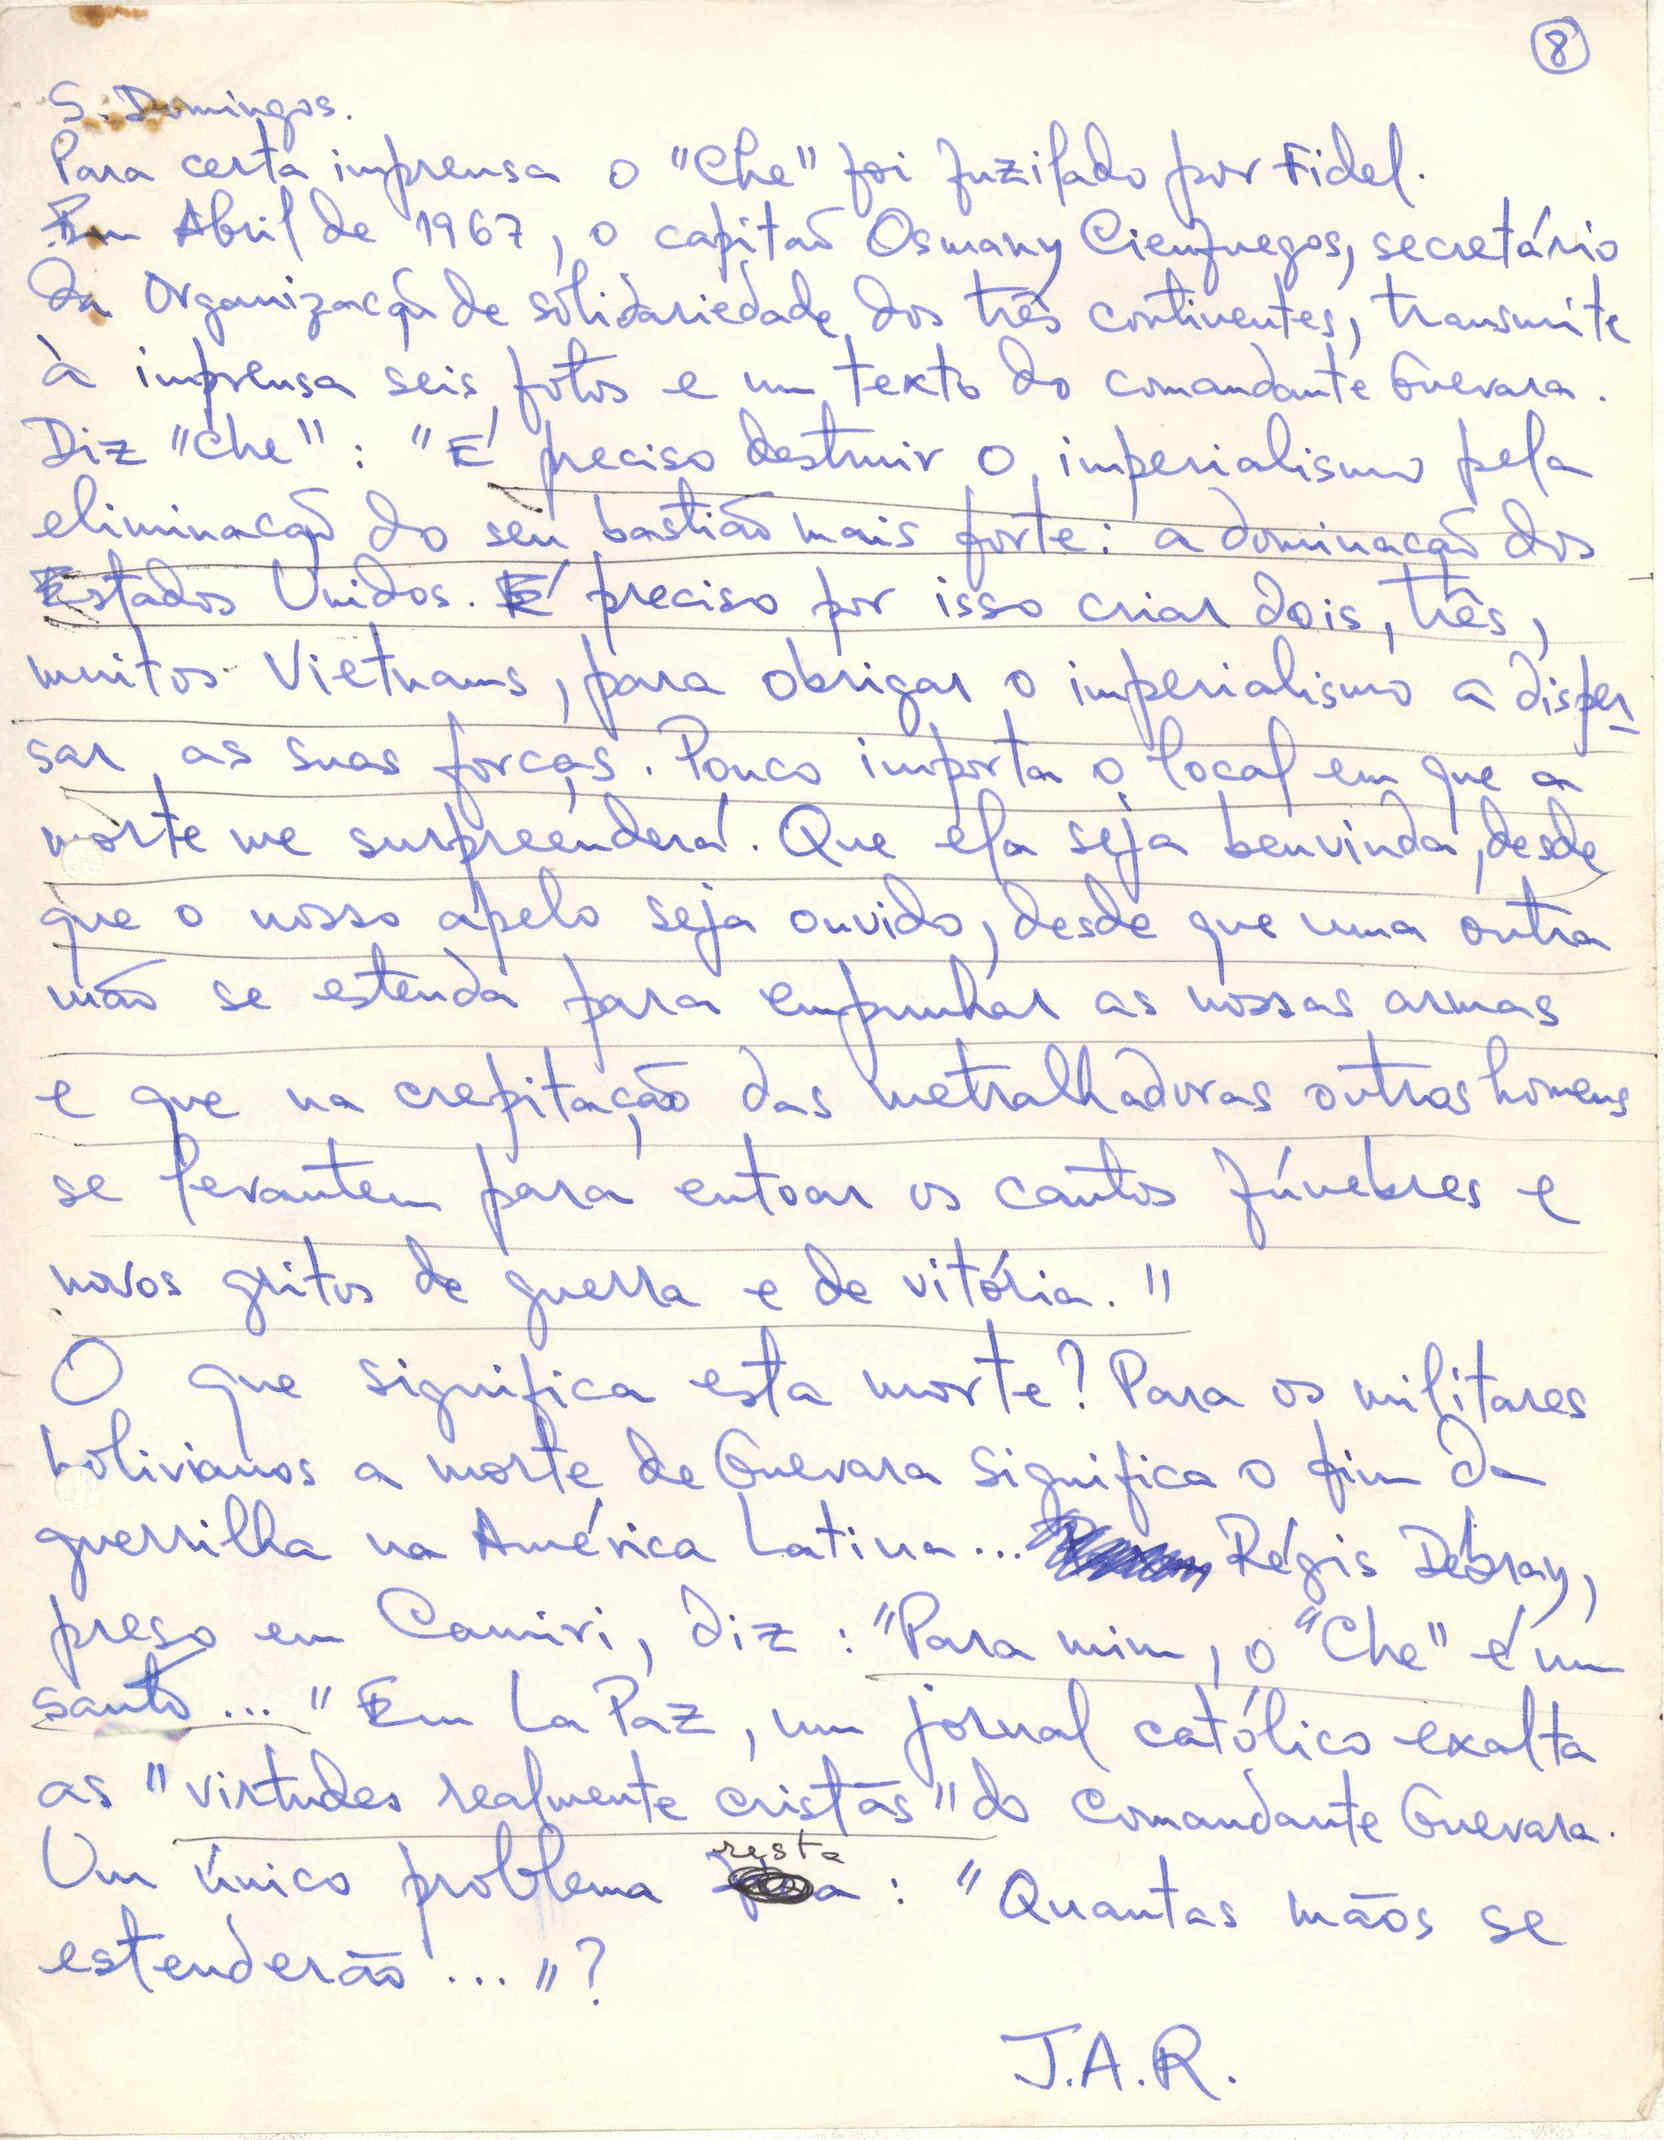 8
S. Domingos.
Para certa imprensa o "Che" foi fuzilado por Fidel.
Em Abril de 1967, o capitão Osmany Cienfuegos, secretário
da Organização de solidariedade dos três continentes, transmite
à imprensa seis fotos e um texto do comandante Guevara.
Diz "Che": "É preciso destruir o imperialismo pela
eliminação do seu bastião mais forte: a dominação dos
Estados Unidos. É preciso por isso criar dois, três,
muitos Vietnams, para obrigar o imperialismo a disper-
sar as suas forças. Pouco importa o local em que a
morte me surpreenderá. Que ela seja benvinda, desde
que o nosso apelo seja ouvido, desde que uma outra
mão se estenda para empunhar as nossas armas
e que na crepitação das metralhadoras outros homens
se levantem para entoar os cantos fúnebres e
novos gritos de guerra e de vitória."
O que significa esta morte? Para os militares
bolivianos a morte de Guevara significa o fim da
guerrilha na América Latina... Régis Debray,
preso em Camiri, diz: "Para mim, o "Che" é um
santo..." Em La Paz, um jornal católico exalta
as "virtudes realmente cristãs" do Comandante Guevara.
Um único problema resta: "Quantas mãos se
estenderão..."?
J.A.R.